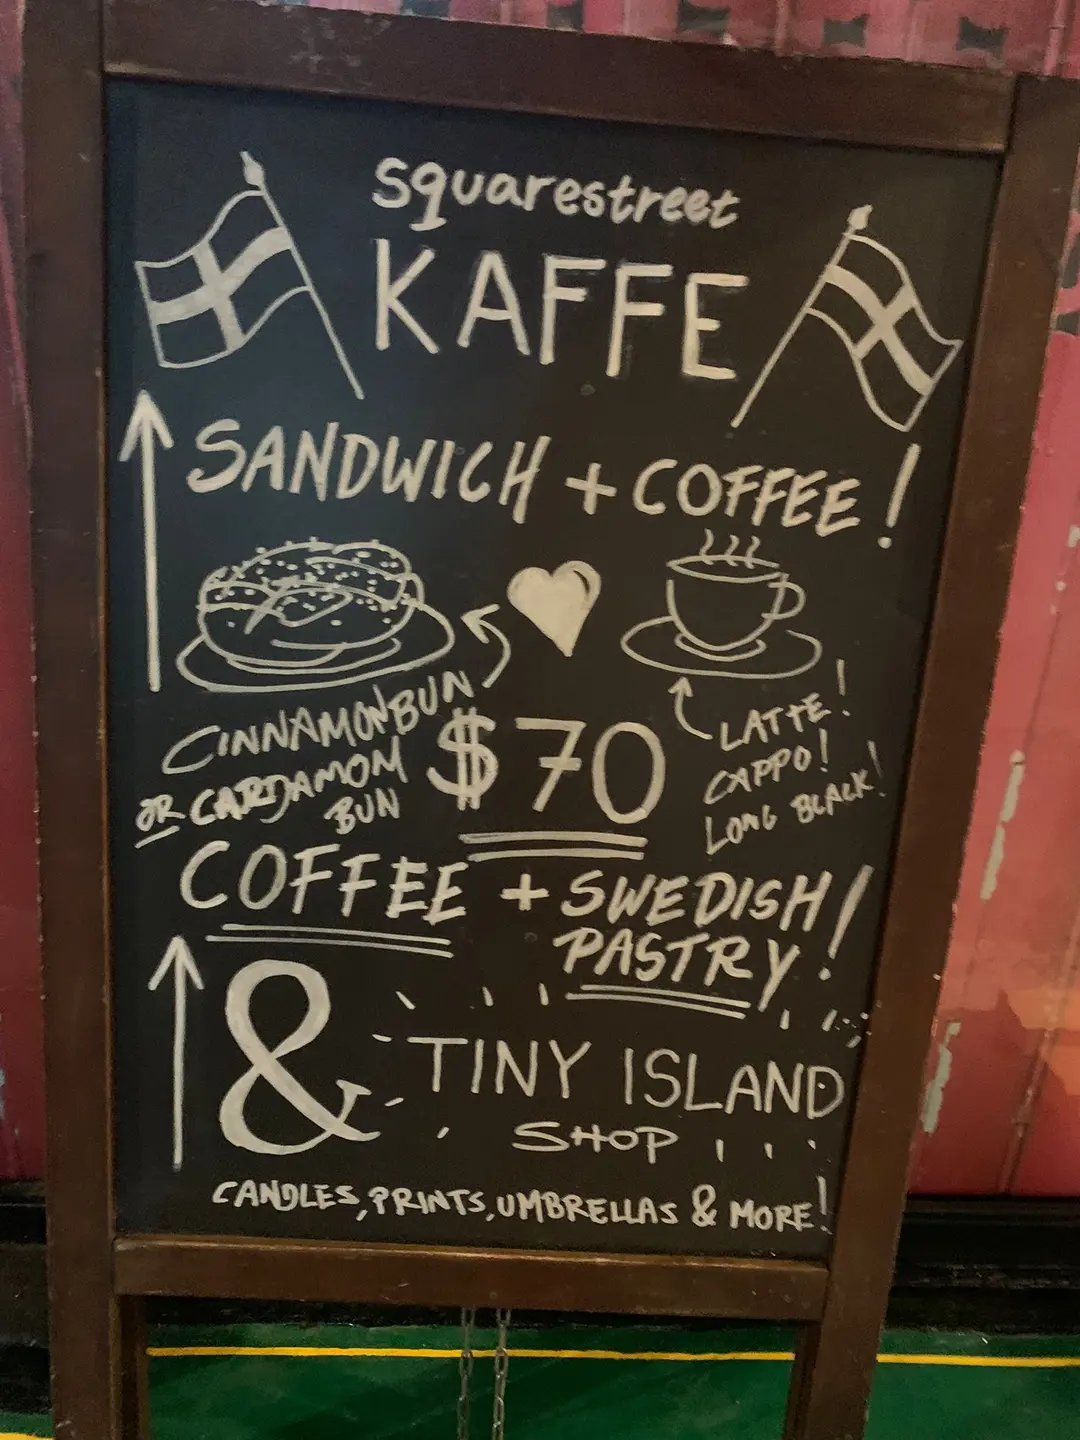 squarestreet
KAFFE
SANDWICH + COFFEE!
CINNAMONBUN
OR CARDAMOM
BUN
$70
LATTE!
CAPPO!
LONG BLACK!
COFFEE + SWEDISH
PASTRY!
& TINY ISLAND
SHOP
CANDLES, PRINTS, UMBRELLAS & MORE!